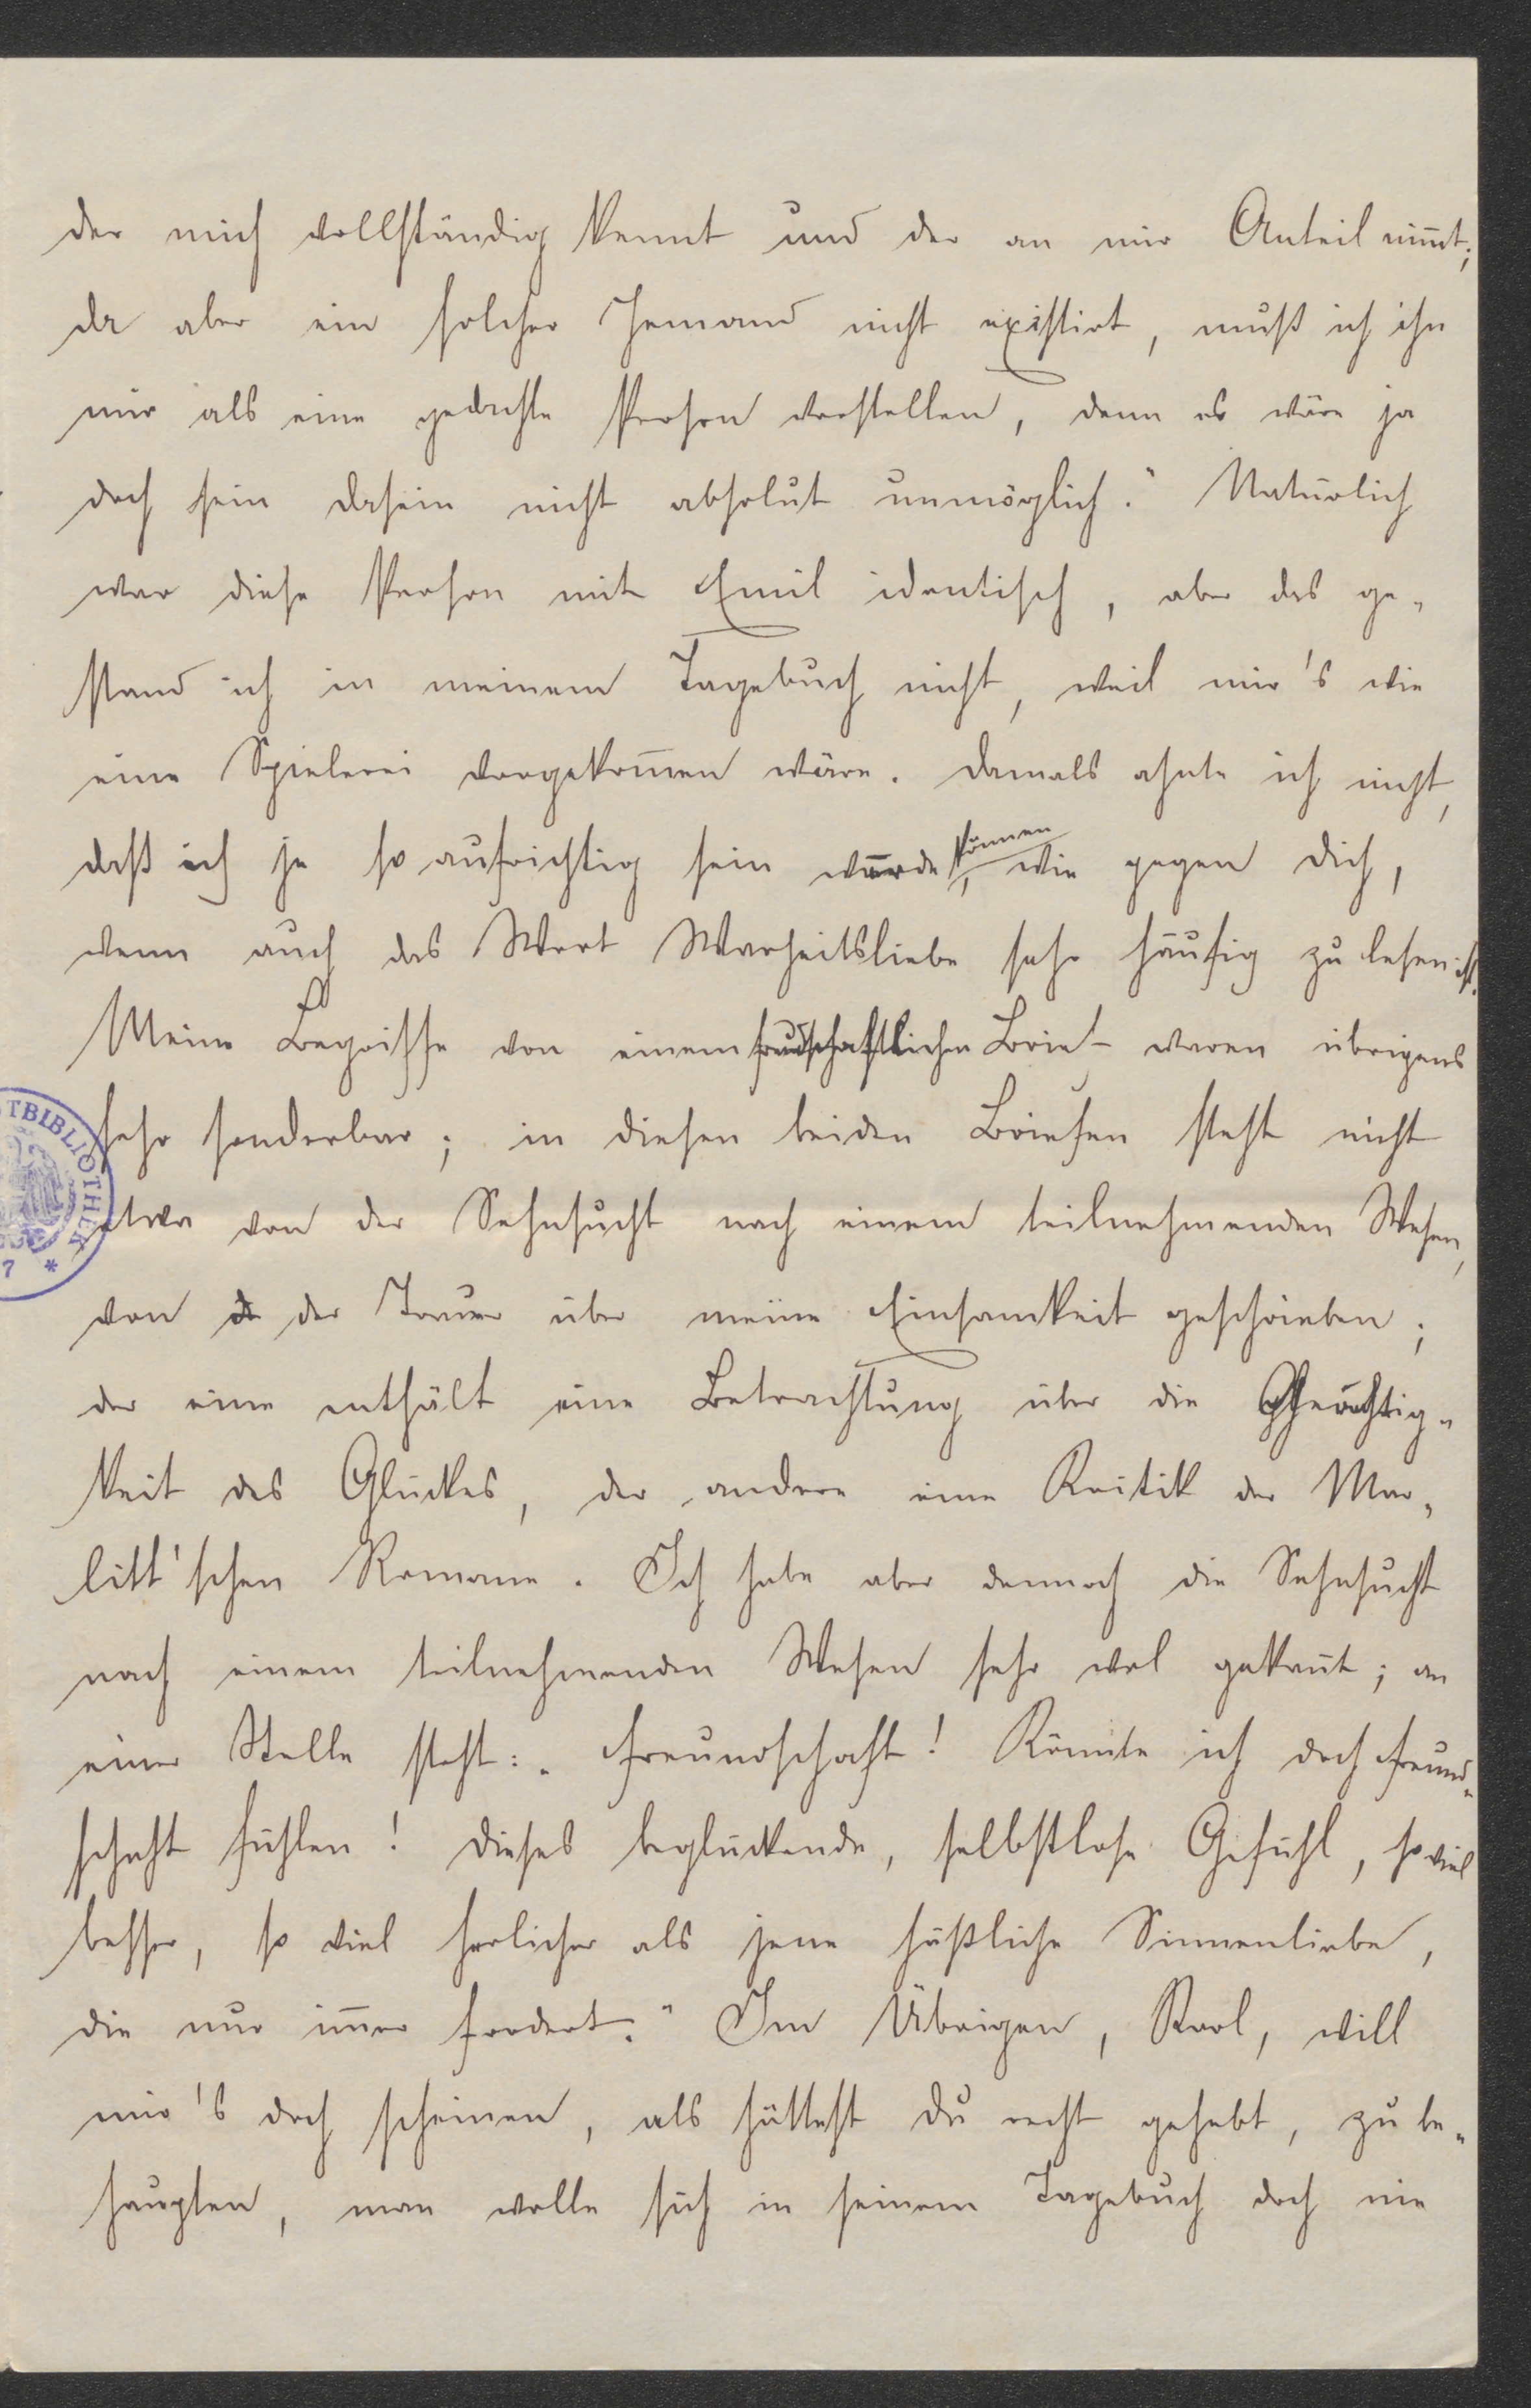 der mich vollständig kennt und der an mir Anteil nim̄t;
da aber ein solcher Jemand nicht existirt, muß ich ihn
mir als eine gedachte Person vorstellen, denn es wäre ja
doch sein Dasein nicht absolut unmöglich." Natürlich
war diese Person mit Emil identisch, aber das ge-
stand ich in meinem Tagebuch nicht, weil mir's wie
eine Spielerei vorgekom̄en wäre. Damals ahnte ich nicht,
daß ich je so aufrichtig sein würde können, wie gegen Dich,
wenn auch das Wort Warheitsliebe sehr häufig zu lesen ist.
Meine Begriffe von einem freundschaftlichen Brief waren übrigens
sehr sonderbar; in diesen beiden Briefen steht nicht
etwa von der Sehnsucht nach einem teilnehmenden Wesen,
von der Trauer über meine Einsamkeit geschrieben;
der eine enthält eine Betrachtung über die
keit des Glückes, der andere eine Kritik der Mar-
litt'schen Romane. Ich habe aber dennoch die Sehnsucht
nach einem teilnehmenden Wesen sehr wol gekan̄t; an
einer Stelle steht: „Freundschaft! Könnte ich doch Freund-
schaft fühlen! Dieses beglückende, selbstlose Gefühl, so viel
besser, so viel herlicher als jene häßliche Sinnenliebe,
die nur im̄er fordert." Im Übrigen, Karl, will
mir's doch scheinen, als hättest Du recht gehabt, zu be-
haupten, man wolle sich in seinem Tagebuch doch nie
TBIBLIOTHEK
7 *